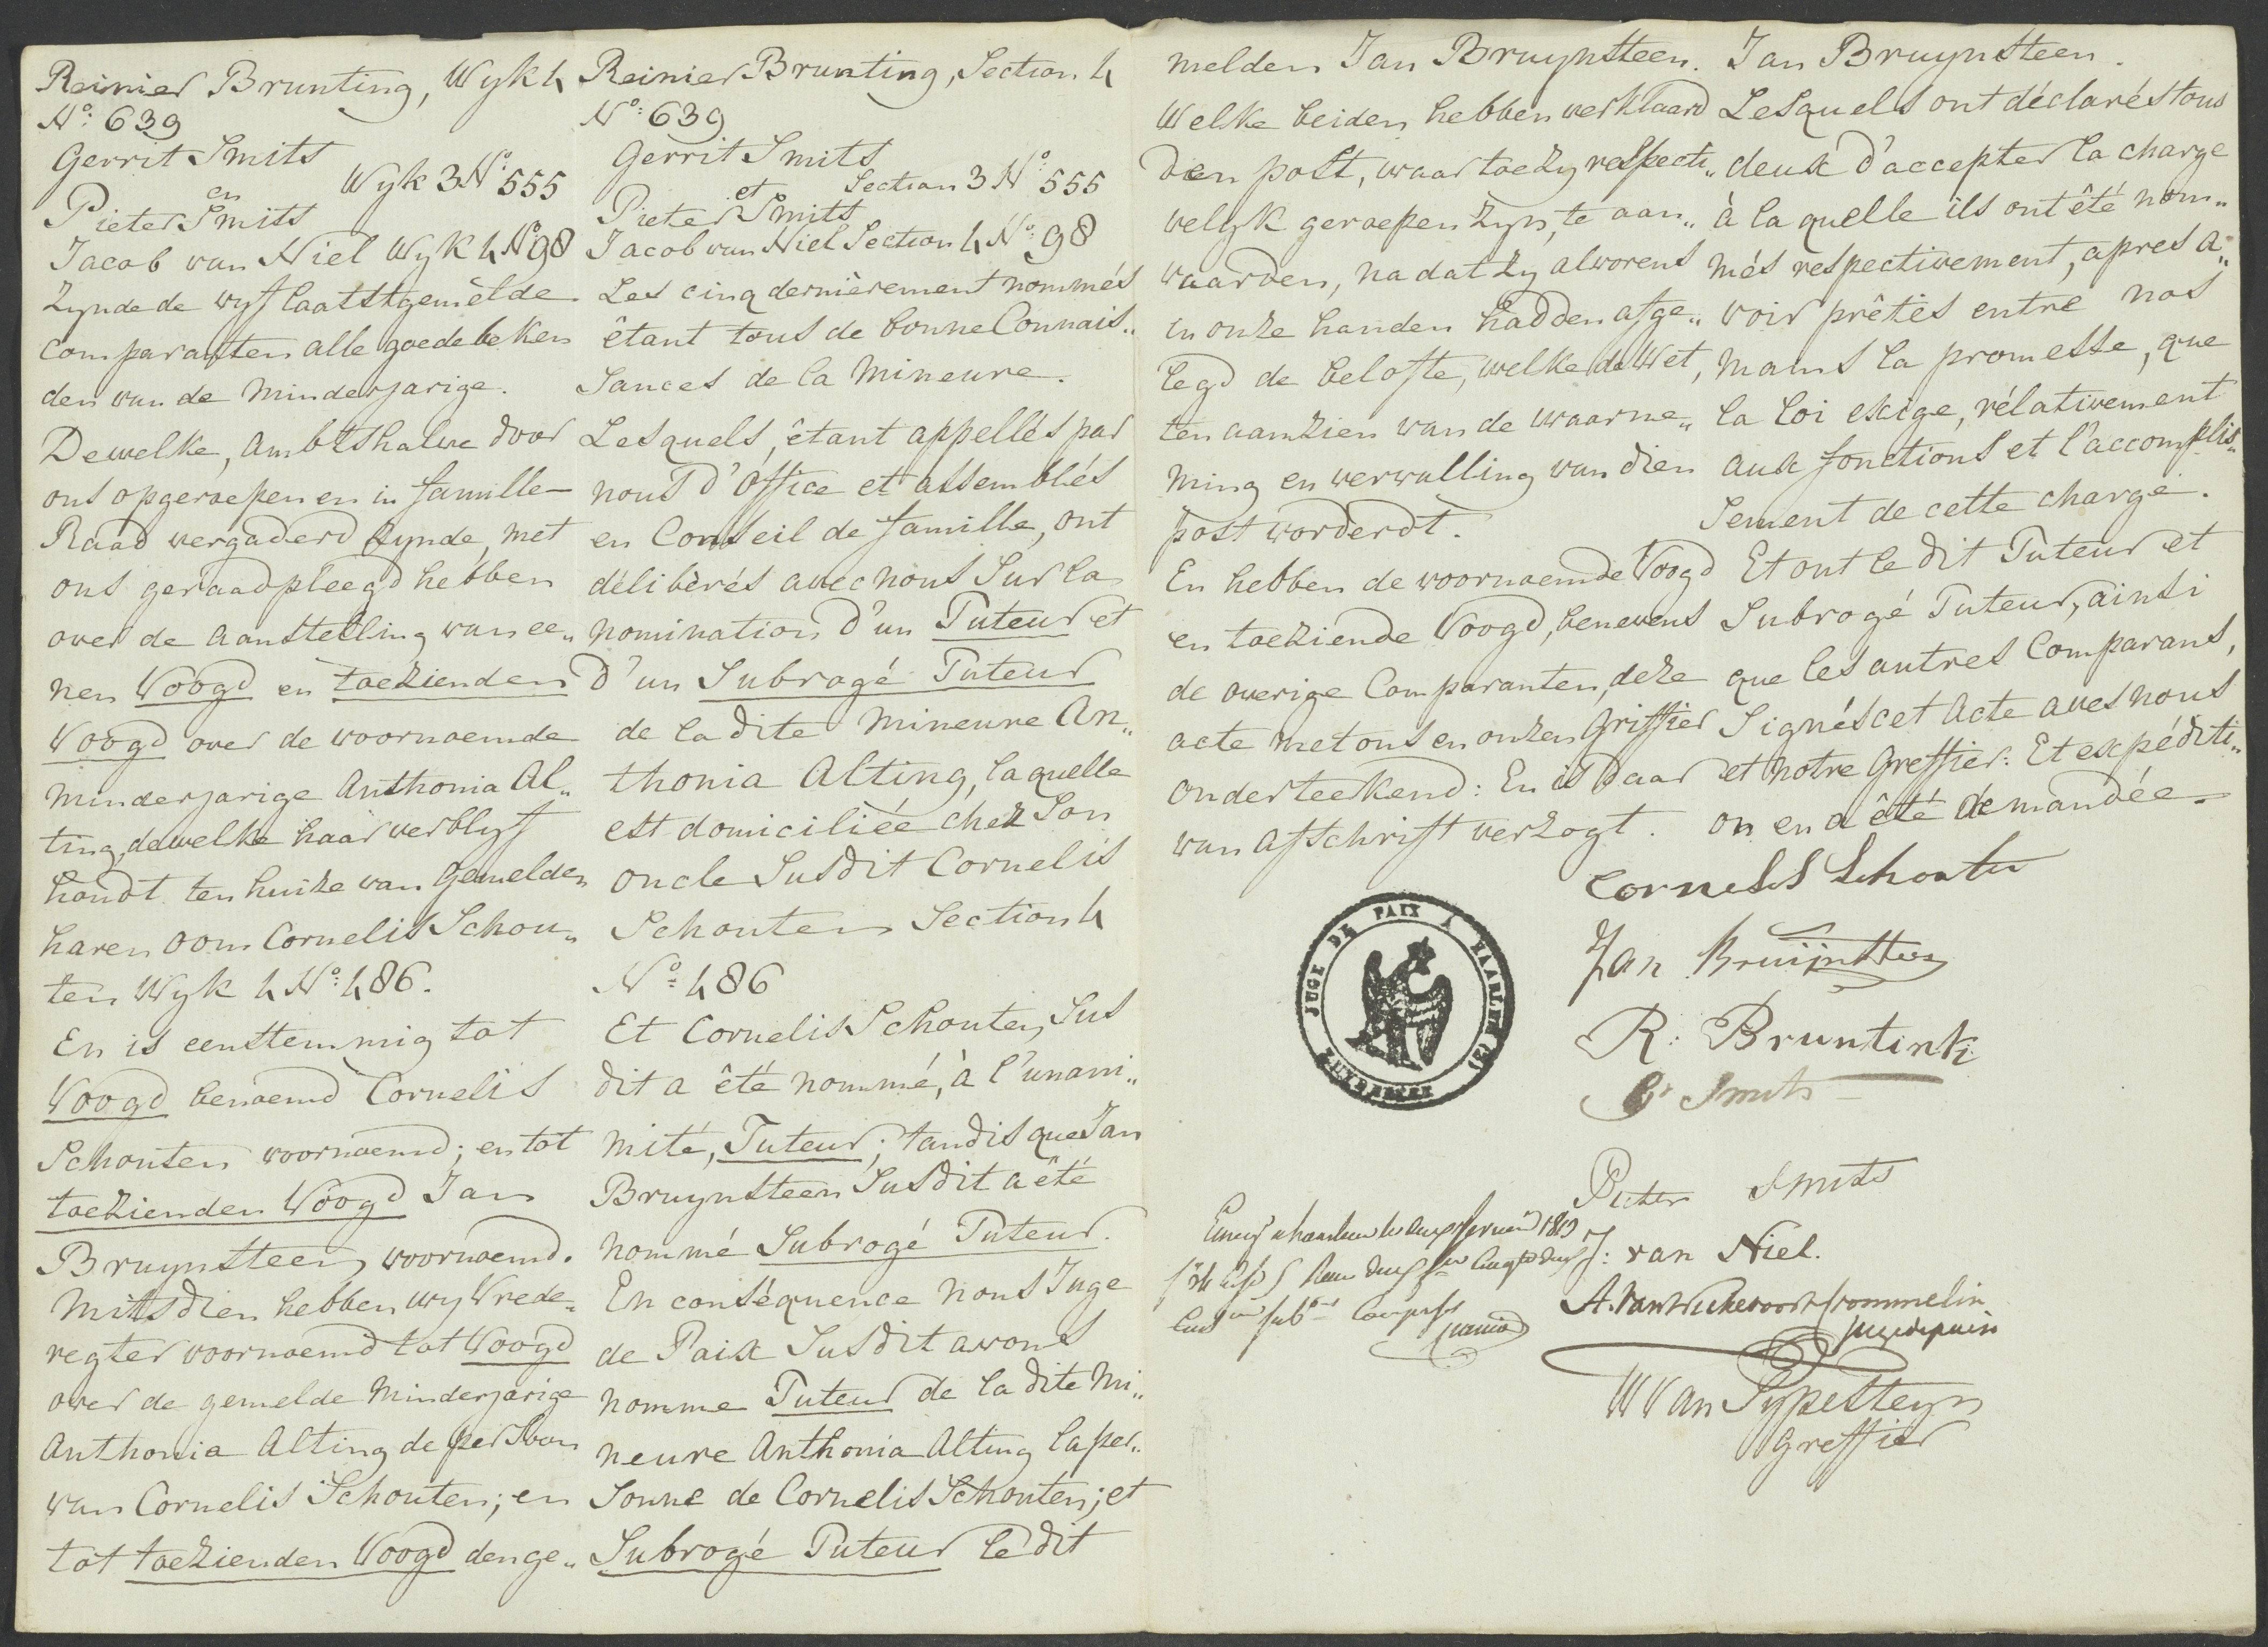 Reinier Brunting, Wyk 4
No: 639
Gerrit Smits
en Wyk 3 No: 555
Pieter Smits
Jacob van Niel Wyk 4 No: 98
Zynde de vyf laatstgemelde
Comparanten alle goede beken
den van de Minderjarige.
Dewelke, ambtshalve door
ons opgeroepen en in famille-
Raad vergaderd zynde, met
ons geraadpleegd hebben
over de aanstelling van ee„
nen Voogd en toezienden
Voogd over de voornoemde
Minderjarige Anthonia Al„
ting, dewelke haar verblyf
houdt ten huize van Gemelden
haren oom Cornelis Schou„
ten Wyk 4 No: 486.
En is eenstemmig tot
Voogd benoemd Cornelis
Schouten voornoemd; en tot
toezienden Voogd Jan
Bruynsteen, voornoemd.
Mitsdien hebben wy Vrede„
regter voornoemd tot Voogd
over de gemelde Minderjarige
Anthonia Alting de persoon
van Cornelis Schouten; en
tot toezienden Voogd den ge„
Reinier Brunting, Section 4
No: 639
Gerrit Smits
et Section 3 No: 555
Pieter Smits
Jacob van Niel Section 4 No: 98
Les cinq dernièrement nommés
étant tous de bonne Connais„
sances de la Mineure.
Lesquels, étant appellés par
nous d'Office et assemblés
en Conseil de famille, ont
délibèrés avec nous Sur la
nomination d'un Tuteur et
d'un Subrogé Tuteur
de la dite Mineure An„
thonia Alting, laquelle
est domiciliée chez Son
oncle Susdit Cornelis
Schouten Section 4
No: 486
Et Cornelis Schouten, Sus
dit a été nommé, à l'unani„
mité, Tuteur; tandis que Jan
Bruynsteen Susdit a été
nommé Subrogé Tuteur.
En conséquence nous Juge
de Paix Susdit avons
nomme Tuteur de la dite Mi„
neure Anthonia Alting la per„
sonne de Cornelis Schouten; et
Subrogé Tuteur le dit
melden Jan Bruynsteen.
Welke beiden hebben verklaard
dien post, waartoe zy respecti„
velyk geroepen zyn, te aan„
vaarden, nadat zy alvorens
in onze handen hadden afge„
legd de belofte, welke de Wet,
ten aanzien van de waarne„
ming en vervulling van dien
post vorderdt.
En hebben de voornoemde Voogd
en toeziende Voogd, benevens
de overige Comparanten, deze
acte met ons en onzen Griffier
onderteekend: En is daar
van afschrift verzogt.
Jan Bruynsteen.
Lesquels ont déclarés tous
deux d'accepter la charge
à la quelle ils ont été nom„
més respectivement, apres a„
voir prêtés entre nos
mains la promesse, que
la loi exige, rélativement
aux fonctions et l'accomplis„
sement de cette charge.
Et ont le dit Tuteur et
Subrogé Tuteur, ainsi
que les autres Comparans,
Signés cet Acte avec nous
et notre Greffier: Et expéditi„
on en a été demandée.
Cornelis Schouten
Jan Bruijnsteen
R: Bruntink
G Smits
Pieter Smits
J: van Niel.
A. van Wickevoort Crommelin
juge de paix
W Van Sypesteyn
Greffier
JUGE DE PAIX A HAARLEM (2)
ZUYDERZEE
1813